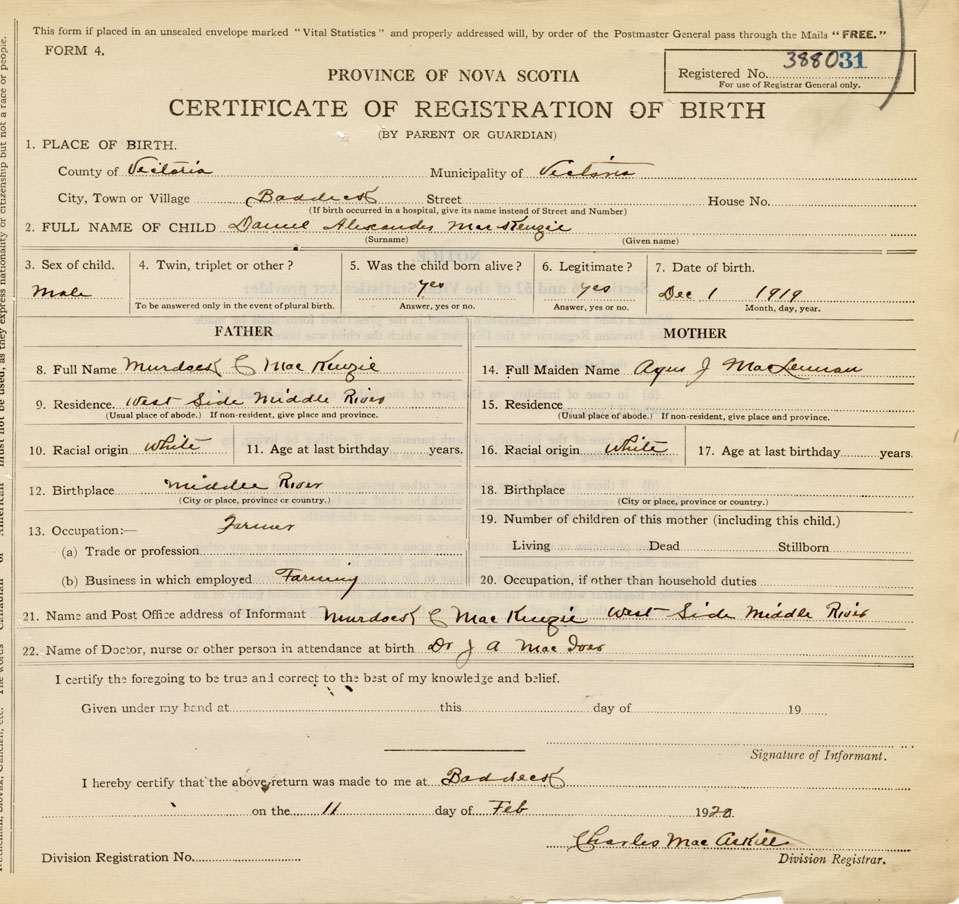 This form if placed in an unsealed envelope marked "Vital Statistics" and properly addressed will, by order of the Postmaster General pass through the Mails "FREE."
FORM 4.
Registered No. 388031
For use of Registrar General only.
PROVINCE OF NOVA SCOTIA
CERTIFICATE OF REGISTRATION OF BIRTH
(BY PARENT OR GUARDIAN)
1. PLACE OF BIRTH.
County of Victoria Municipality of Victoria
City, Town or Village Baddeck Street House No.
(If birth occurred in a hospital, give its name instead of Street and Number)
2. FULL NAME OF CHILD Daniel Alexander MacKenzie
(Surname) (Given name)
3. Sex of child. 4. Twin, triplet or other? 5. Was the child born alive? 6. Legitimate? 7. Date of birth.
Male yes yes Dec 1 1919
To be answered only in the event of plural birth. Answer, yes or no. Answer, yes or no. Month, day, year.
FATHER MOTHER
8. Full Name Murdock C MacKenzie 14. Full Maiden Name J MacLennan
9. Residence. West Side Middle River 15. Residence
(Usual place of abode.) If non-resident, give place and province. (Usual place of abode.) If non-resident, give place and province.
10. Racial origin White 11. Age at last birthday years. 16. Racial origin White 17. Age at last birthday years.
12. Birthplace Middle River 18. Birthplace
(City or place, province or country.) (City or place, province or country.)
13. Occupation:— Farmer 19. Number of children of this mother (including this child.)
(a) Trade or profession Living Dead Stillborn
(b) Business in which employed Farming 20. Occupation, if other than household duties
21. Name and Post Office address of Informant Murdock C MacKenzie West Side Middle River
22. Name of Doctor, nurse or other person in attendance at birth Dr J A MacIver
I certify the foregoing to be true and correct to the best of my knowledge and belief.
Given under my hand at this day of 19
Signature of Informant.
I hereby certify that the above return was made to me at Baddeck
on the 11 day of Feb 1920.
Charles MacAskill
Division Registration No. Division Registrar.